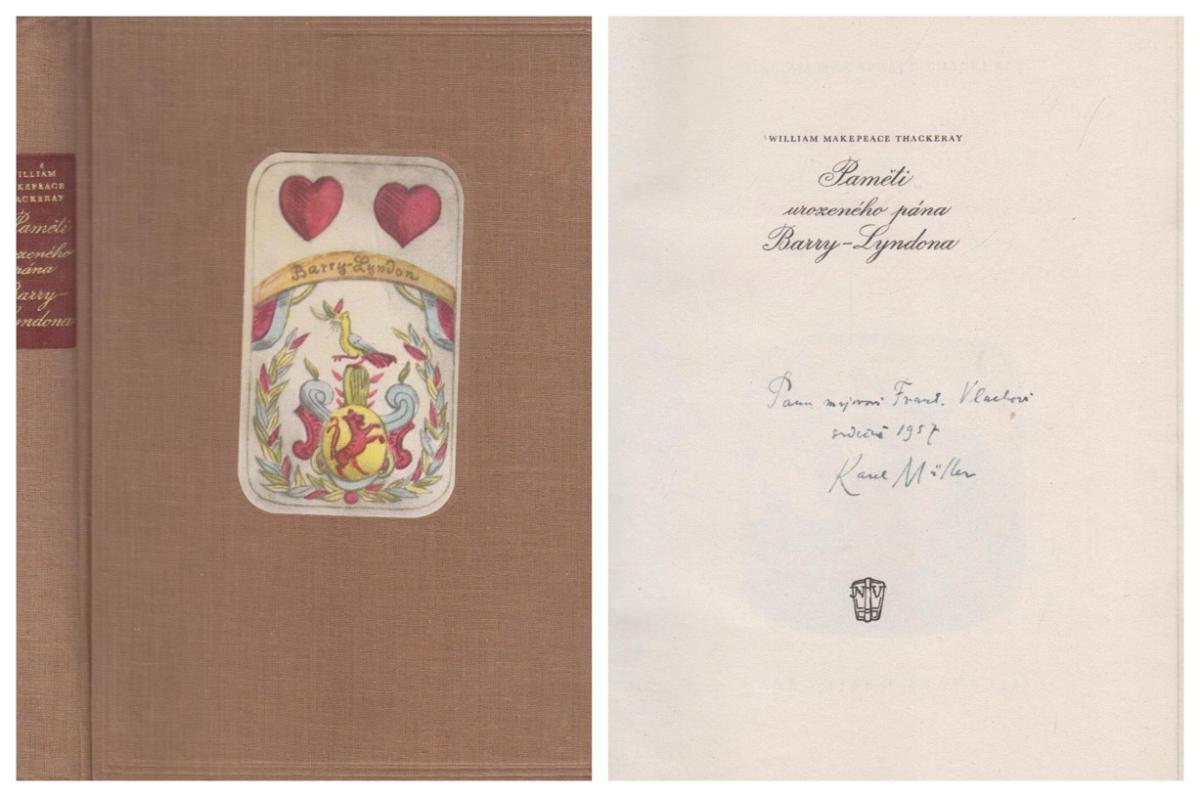 WILLIAM
MAKEPEACE
THACKERAY
Paměti
urozeného
pána
Barry-
Lyndona
Barry-Lyndon
WILLIAM MAKEPEACE THACKERAY
Paměti
urozeného pána
Barry-Lyndona
Panu Frant. Vlachovi
srdečně 1957
Karel Müller
NV